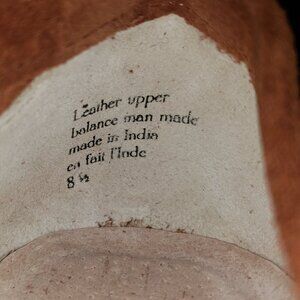 Leather upper
balance man made
made in India
en fait l'Inde
8 ½